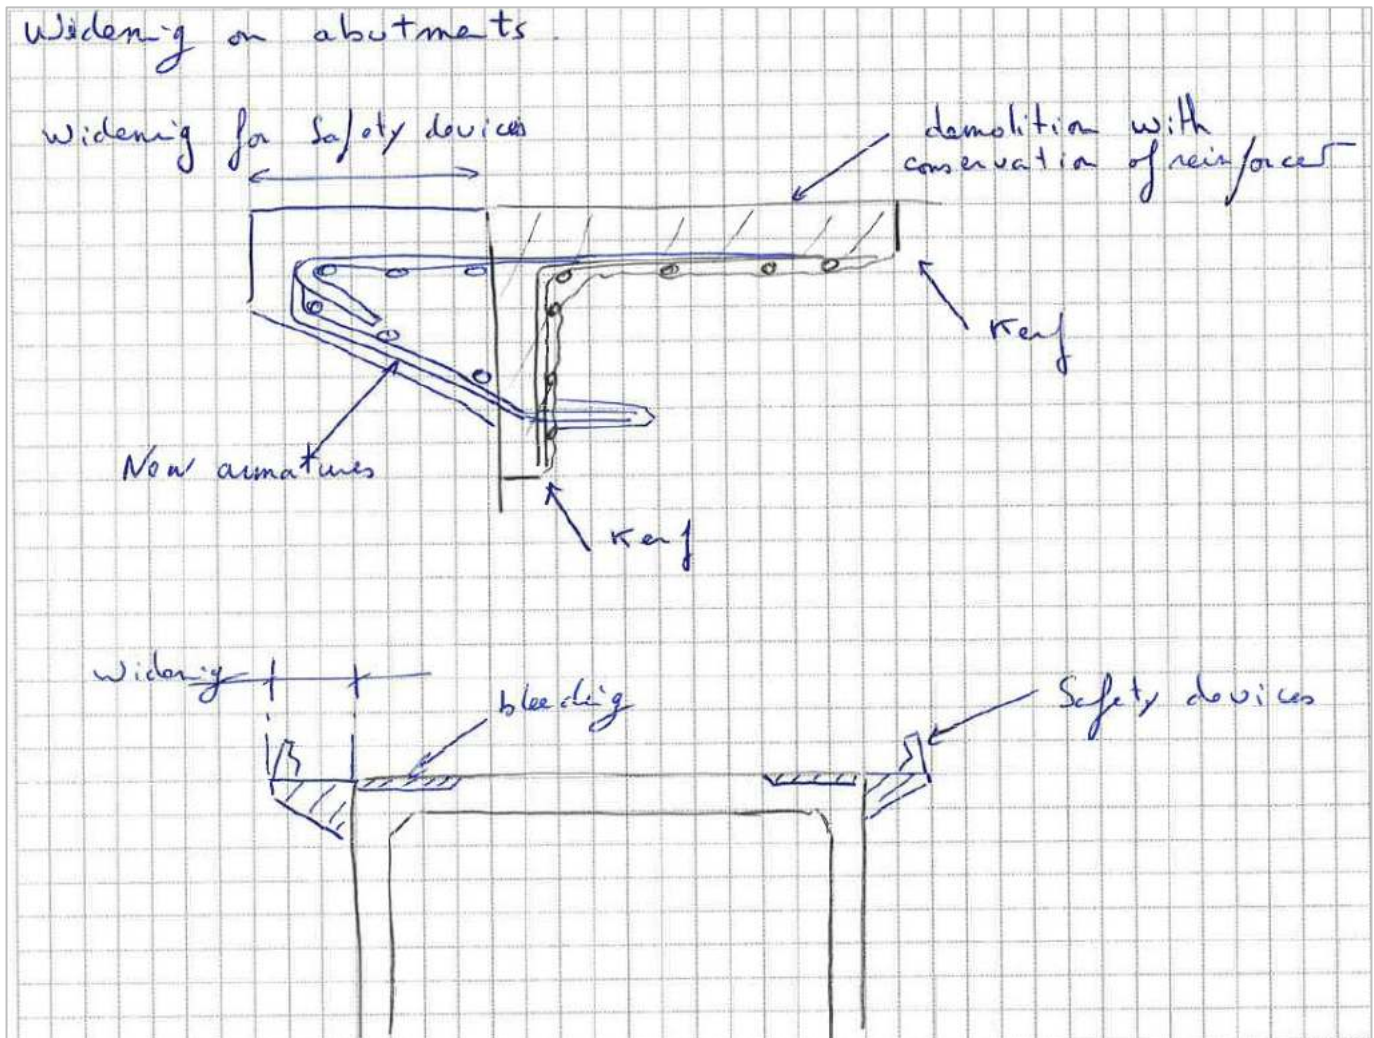 Widening on abutments.
Widening for Safety devices
demolition with
conservation of reinforcet
Kerf
New armatures
Kerf
Widening
bleeding
Safety devices